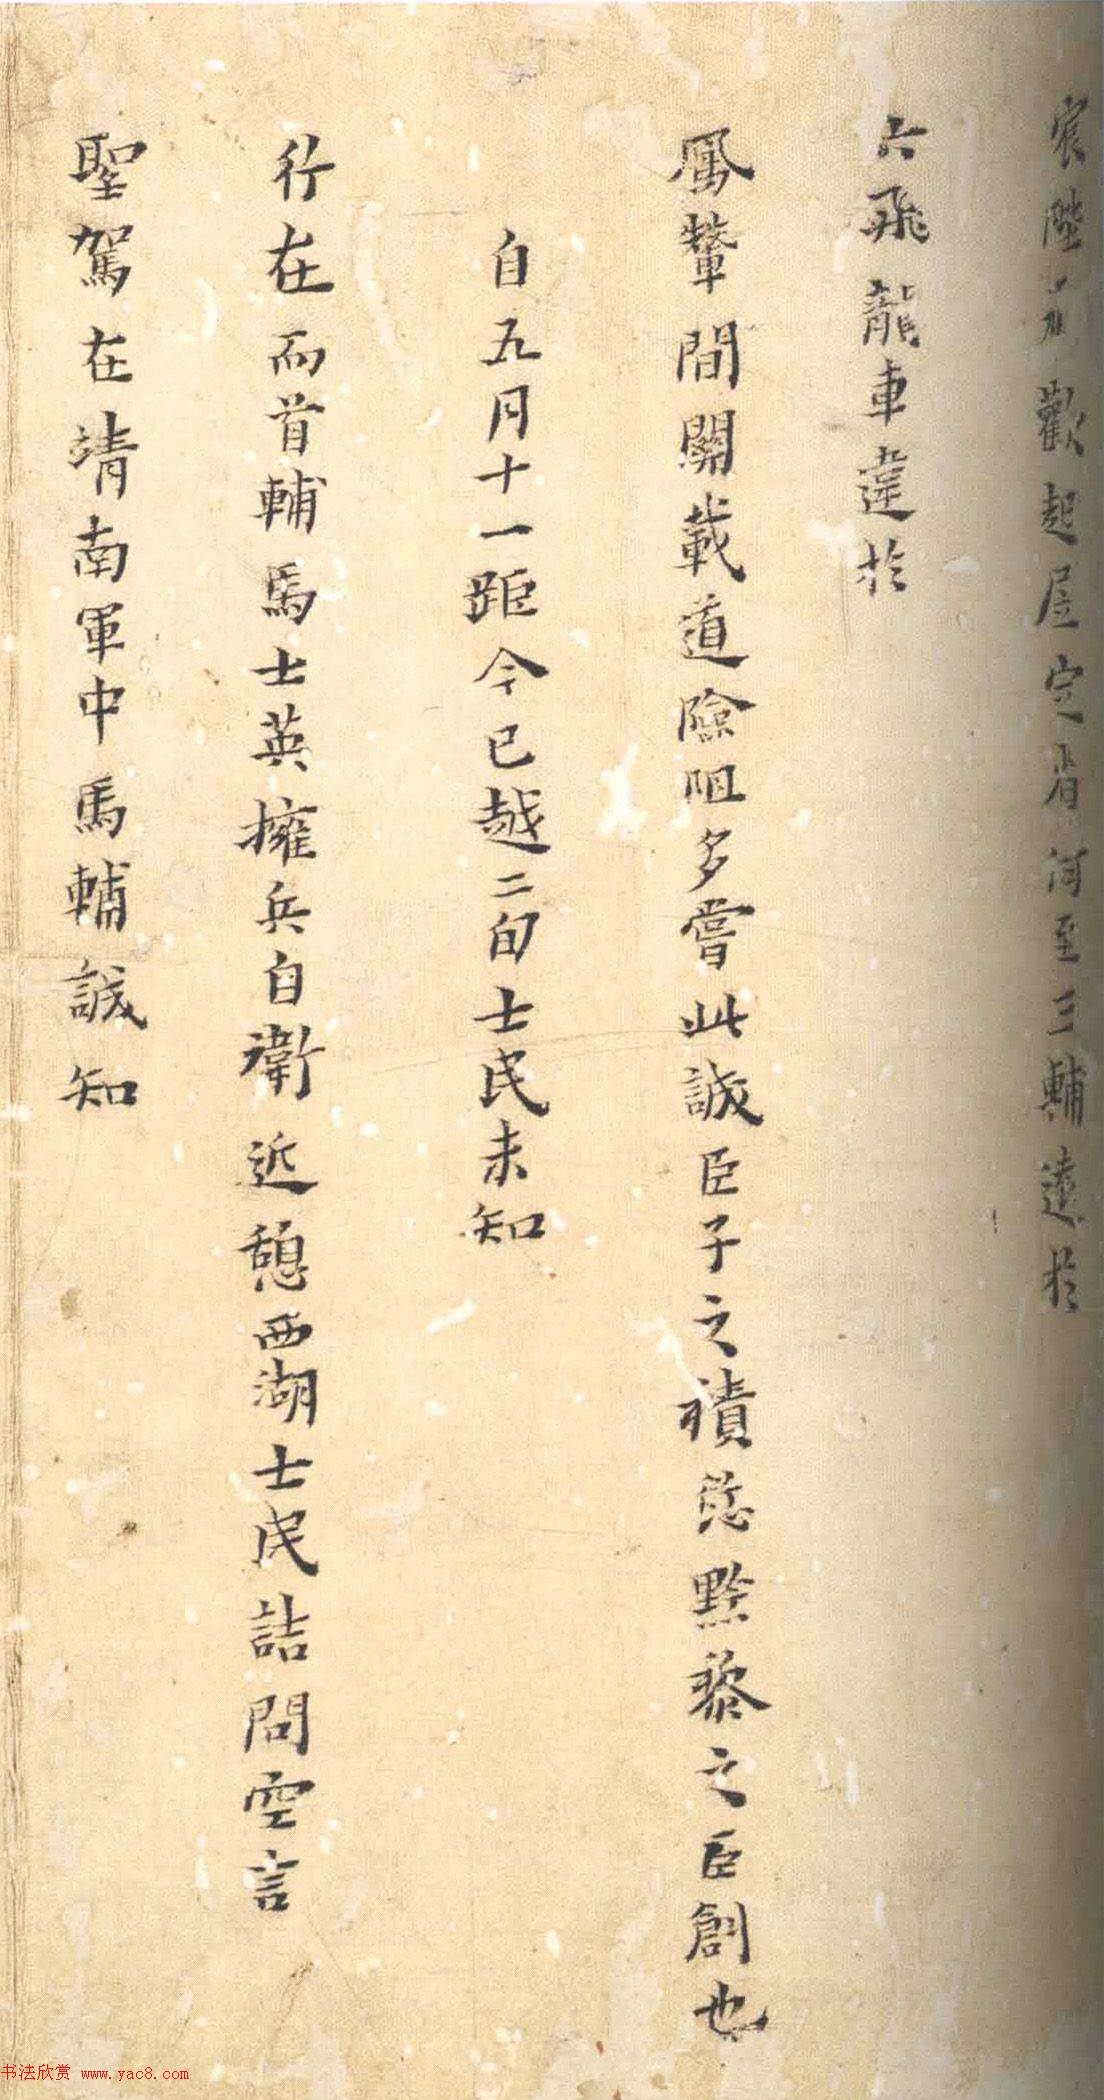 宸陛承歡起居定省何至三輔遠於
六飛龍車違於
鳳輦間關載道險阻多嘗此誠臣子之積愆黔黎之巨創也
自五月十一距今已越二旬士民未知
行在而首輔馬士英擁兵自衛近憩西湖士民詰問空言
聖駕在靖南軍中馬輔誠知
书法欣赏 www.yac8.com